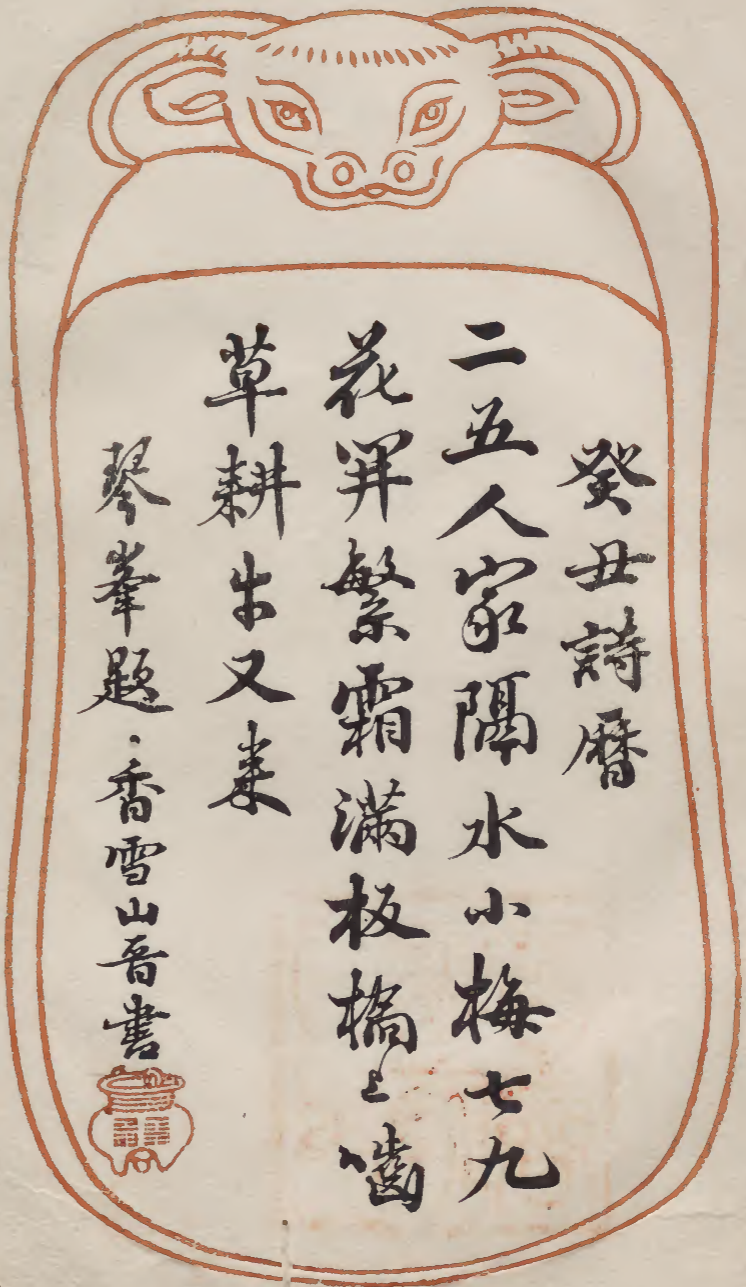 癸丑詩暦
二五人家隔水小梅七九
花開繁霜満板橋上嚙
草耕牛又来
琴峯題・香雪山晋書